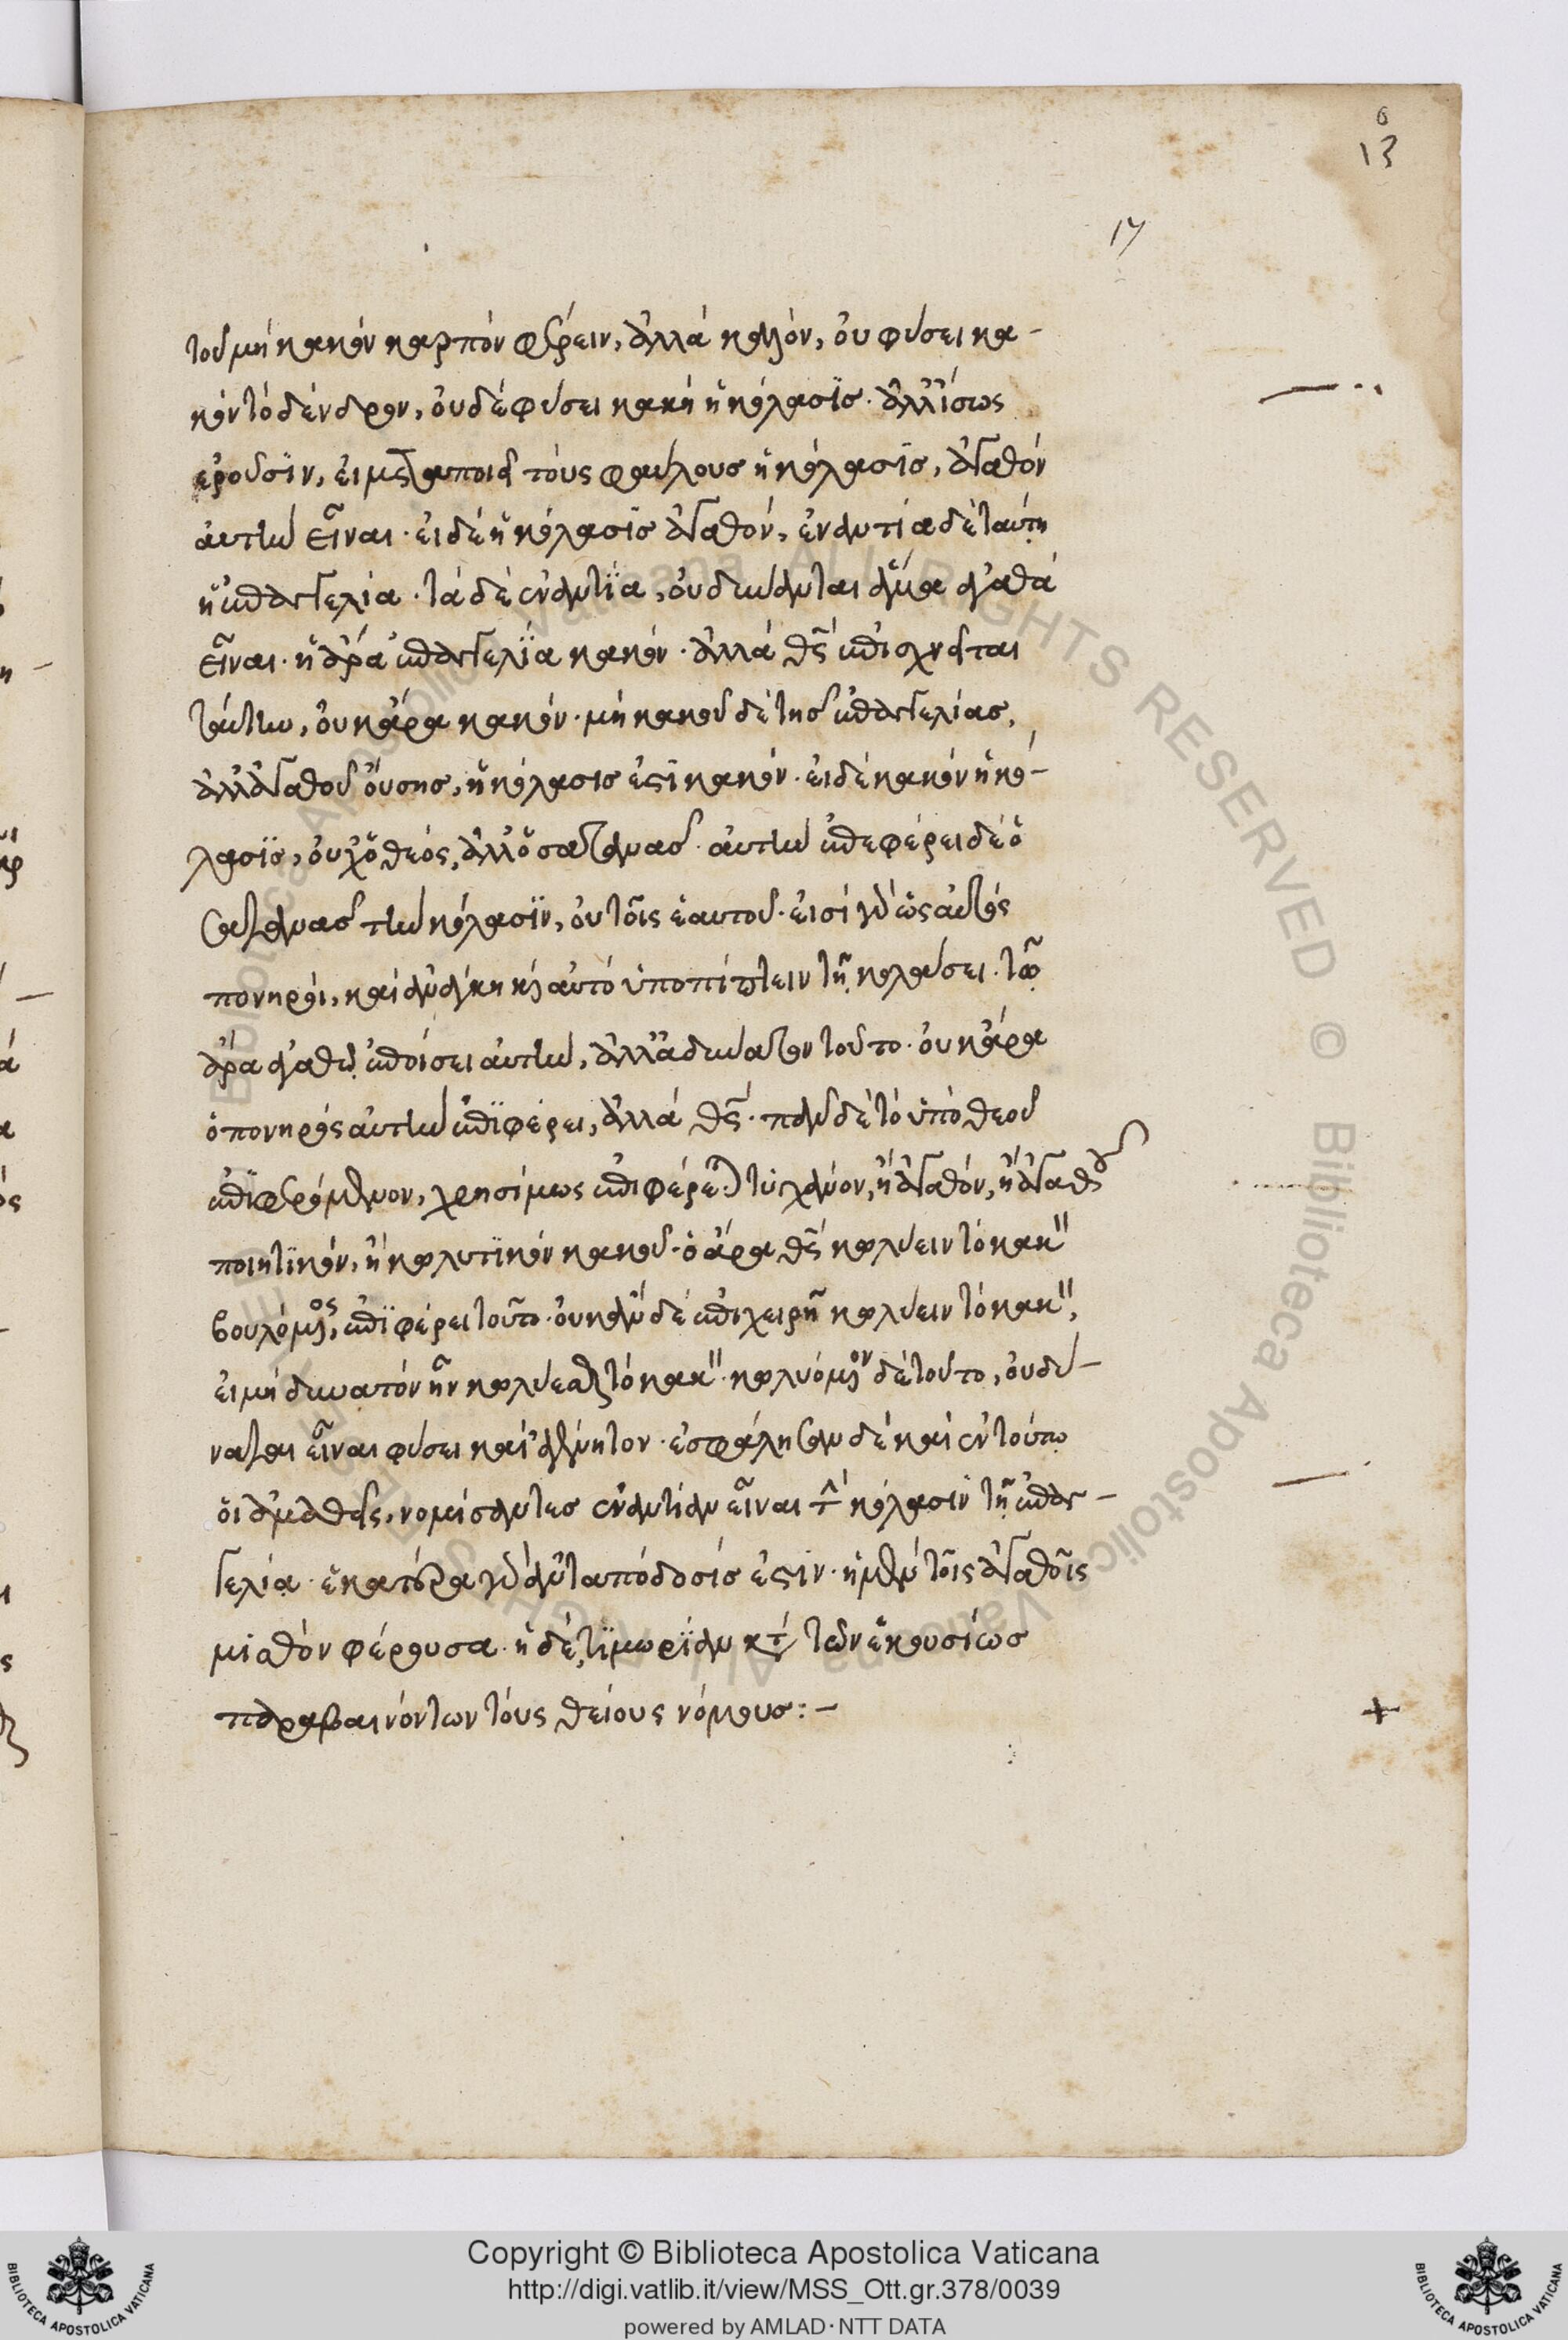 6
13
17
τοῦ μὴ κακὸν καρπὸν φέρειν, ἀλλὰ καλόν, οὐ φύσει κα-
κὸν τὸ δένδρον, οὐδὲ φύσει κακὴ ἡ κόλασϊσ. ἀλλ' ἴσως
ἐροῦσϊν, εἰ μεταποιεῖ τοὺς φαύλουσ ἡ κόλασϊσ, ἀγαθὸν
αὐτὴν εἶναι. εἰ δὲ ἡ κόλασϊσ ἀγαθόν, ἐναντία δὲ ταύτη
ἡ ἐπαγγελία. τὰ δὲ ἐναντΐα, οὐ δύναται ἅμα ἀγαθὰ
εἶναι. ἡ ἄρα ἐπαγγελΐα κακόν. ἀλλὰ θς ἐπισχνεῖται
ταύτην, οὐκ ἄρα κακόν. μὴ κακοῦ δὲ τῆσ ἐπαγγελίασ,
ἀλλ' ἀγαθοῦ οὔσησ, ἡ κόλασισ ἐστὶ κακόν. εἰ δὲ κακὸν ἡ κό-
λασϊσ, οὐχ ὁ θεός, ἀλλ' ὁ σατανᾶσ αὐτὴν ἐπεφέρει δὲ ὁ
σατανᾶσ τὴν κόλασϊν, οὐ τοῖς ἑαυτοῦ. εἰσὶ γὰρ ὡς αὐτὸς
πονηροί, καὶ ἀνάγκη κατ' αὐτὸ ὑποπίπτειν τῆ κολάσει. τῶ
ἄρα ἀγαθῶ ἐποίσει αὐτήν, ἀλλ' ἀδύνατον τοῦτο. οὐκ ἄρα
ὁ πονηρὸς αὐτὴν ἐπϊφέρει, ἀλλὰ θς. πᾶν δὲ τὸ ὑπὸ θεοῦ
ἐπϊφερόμενον, χρησίμως ἐπιφέρεται τυγχάνον, ἢ ἀγαθόν, ἢ ἀγαθοῦ
ποιητϊκόν, ἢ κωλυτϊκὸν κακοῦ. ὁ ἄρα θς κωλύειν τὸ κακ"
βουλόμενος, ἐπϊφέρει τοῦτο. οὐκ ἂν δὲ ἐπιχειρῆ κωλύειν τὸ κακ",
εἰ μὴ δυνατὸν ἦν κωλύεσθαι τὸ κακ". κωλυόμενον δὲ τοῦτο, οὐ δύ-
ναται εἶναι φύσει καὶ ἀγένητον. ἐσφάλησαν δὲ καὶ ἐν τούτω
οἱ ἀμαθεῖς, νομίσαντεσ ἐναντίαν εἶναι τὴν κόλασιν τῆ ἐπαγ-
γελία. ἑκατέρα γὰρ ἀνταπόδοσίσ ἐστιν. ἡ μὲν τοῖς ἀγαθοῖς
μισθὸν φέρουσα. ἡ δὲ, τϊμωρϊαν κατὰ τῶν ἑκουσίωσ
παραβαινόντων τοὺς θείους νόμουσ:-
Copyright © Biblioteca Apostolica Vaticana
http://digi.vatlib.it/view/MSS_Ott.gr.378/0039
powered by AMLAD·NTT DATA
BIBLIOTECA APOSTOLICA VATICANA
BIBLIOTECA APOSTOLICA VATICANA